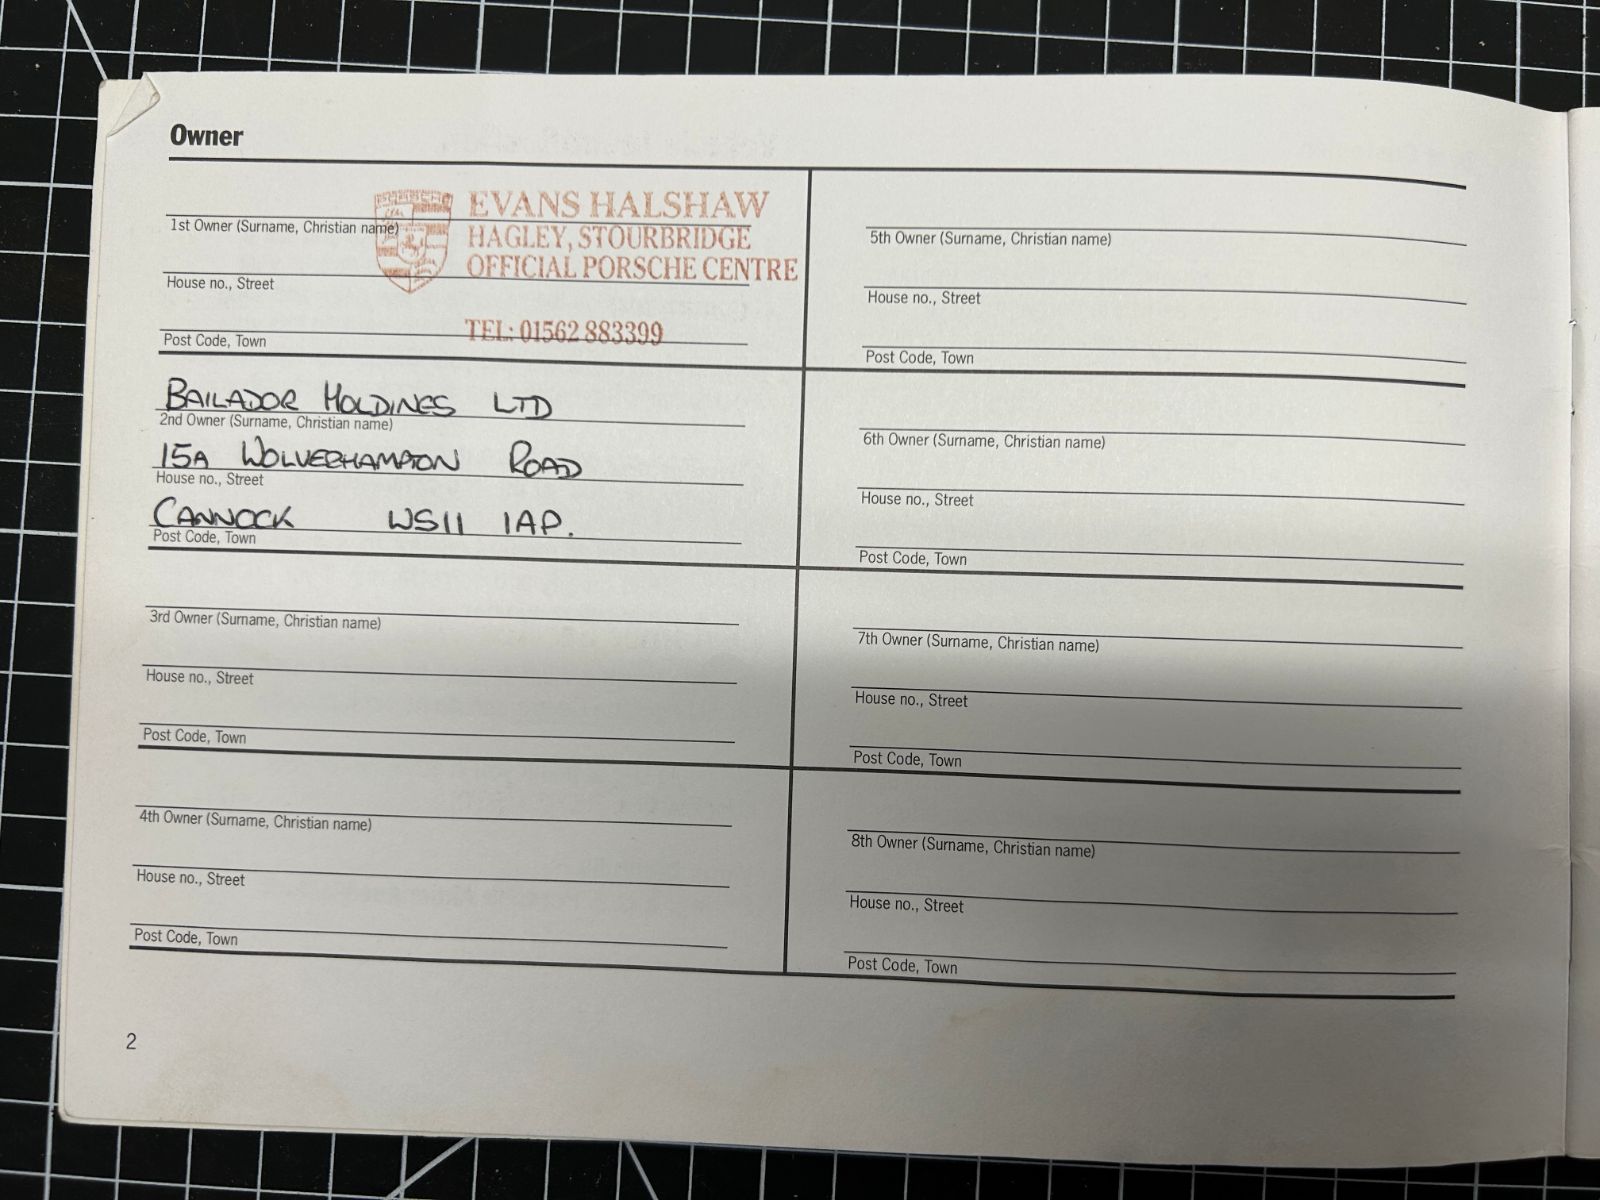 Owner
PORSCHE
EVANS HALSHAW
1st Owner (Surname, Christian name)
HAGLEY, STOURBRIDGE
OFFICIAL PORSCHE CENTRE
House no., Street
TEL: 01562 883399
Post Code, Town
BAILADOR HOLDINGS LTD
2nd Owner (Surname, Christian name)
15A WOLVERHAMPTON ROAD
House no., Street
CANNOCK WS11 1AP.
Post Code, Town
3rd Owner (Surname, Christian name)
House no., Street
Post Code, Town
4th Owner (Surname, Christian name)
House no., Street
Post Code, Town
5th Owner (Surname, Christian name)
House no., Street
Post Code, Town
6th Owner (Surname, Christian name)
House no., Street
Post Code, Town
7th Owner (Surname, Christian name)
House no., Street
Post Code, Town
8th Owner (Surname, Christian name)
House no., Street
Post Code, Town
2